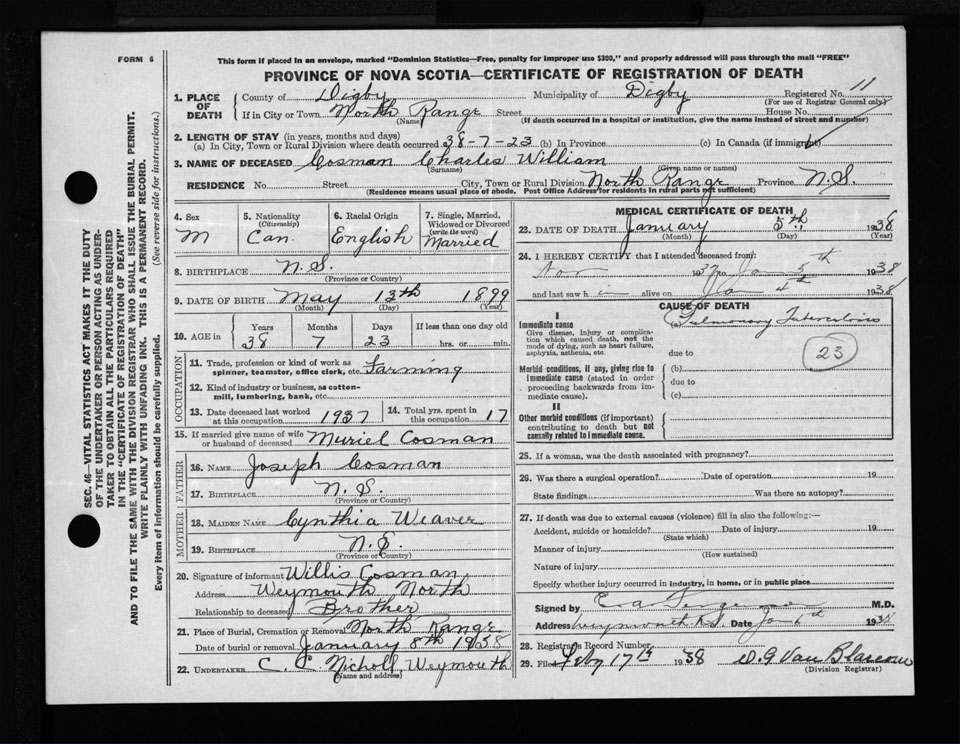 FORM 6
This form if placed in an envelope, marked "Dominion Statistics—Free, penalty for improper use $300," and properly addressed will pass through the mail "FREE"
PROVINCE OF NOVA SCOTIA—CERTIFICATE OF REGISTRATION OF DEATH
SEC. 46—VITAL STATISTICS ACT MAKES IT THE DUTY
OF THE UNDERTAKER OR PERSON ACTING AS UNDER-
TAKER TO OBTAIN ALL THE PARTICULARS REQUIRED
IN THE "CERTIFICATE OF REGISTRATION OF DEATH"
AND TO FILE THE SAME WITH THE DIVISION REGISTRAR WHO SHALL ISSUE THE BURIAL PERMIT.
WRITE PLAINLY WITH UNFADING INK. THIS IS A PERMANENT RECORD.
Every item of Information should be carefully supplied. (See reverse side for instructions.)
1. PLACE OF DEATH
County of Digby Municipality of Digby Registered No. 11
(For use of Registrar General only)
If in City or Town North Range Street House No.
(Name) (If death occurred in a hospital or institution, give the name instead of street and number)
2. LENGTH OF STAY (in years, months and days)
(a) In City, Town or Rural Division where death occurred 38-7-23 (b) In Province (c) In Canada (if immigrant)
3. NAME OF DECEASED Cosman Charles William
(Surname) (Given name or names)
RESIDENCE No. Street City, Town or Rural Division North Range Province N.S.
(Residence means usual place of abode. Post Office Address for residents in rural parts not sufficient)
4. Sex M
5. Nationality (Citizenship) Can.
6. Racial Origin English
7. Single, Married, Widowed or Divorced (write the word) Married
8. BIRTHPLACE N.S.
(Province or Country)
9. DATE OF BIRTH May 13th 1899
(Month) (Day) (Year)
10. AGE IN Years 38 Months 7 Days 23 If less than one day old hrs. or min.
OCCUPATION
11. Trade, profession or kind of work as spinner, teamster, office clerk, etc. Farming
12. Kind of industry or business, as cotton-mill, lumbering, bank, etc.
13. Date deceased last worked at this occupation 1937
14. Total yrs. spent in this occupation 17
15. If married give name of wife or husband of deceased Muriel Cosman
FATHER
16. NAME Joseph Cosman
17. BIRTHPLACE N.S.
(Province or Country)
MOTHER
18. MAIDEN NAME Cynthia Weaver
19. BIRTHPLACE N.S.
(Province or Country)
20. Signature of informant Willis Cosman
Address Weymouth North
Relationship to deceased Brother
21. Place of Burial, Cremation or Removal North Range
Date of burial or removal January 8th 1938
22. UNDERTAKER C. Nicholl, Weymouth
(Name and address)
MEDICAL CERTIFICATE OF DEATH
23. DATE OF DEATH January 5th 1938
(Month) (Day) (Year)
24. I HEREBY CERTIFY that I attended deceased from:
Nov 1937 to Jan 5th 1938
and last saw h im alive on Jan 4th 1938
CAUSE OF DEATH
I
Immediate cause (a) Pulmonary Tuberculosis
Give disease, injury or complica-
tion which caused death, not the
mode of dying, such as heart failure,
asphyxia, asthenia, etc.
due to
23
Morbid conditions, if any, giving rise to
immediate cause (stated in order
proceeding backwards from im-
mediate cause).
(b)
due to
(c)
II
Other morbid conditions (if important)
contributing to death but not
causally related to immediate cause.
25. If a woman, was the death associated with pregnancy?
26. Was there a surgical operation? Date of operation 19
State findings Was there an autopsy?
27. If death was due to external causes (violence) fill in also the following:—
Accident, suicide or homicide? Date of injury 19
(State which)
Manner of injury
(How sustained)
Nature of injury
Specify whether injury occurred in industry, in home, or in public place
Signed by M.D.
Address Weymouth N.S. Date Jan 6th 1938
28. Registrar's Record Number
29. Filed Feby 17th 1938 D. G. Van Blarcom
(Division Registrar)